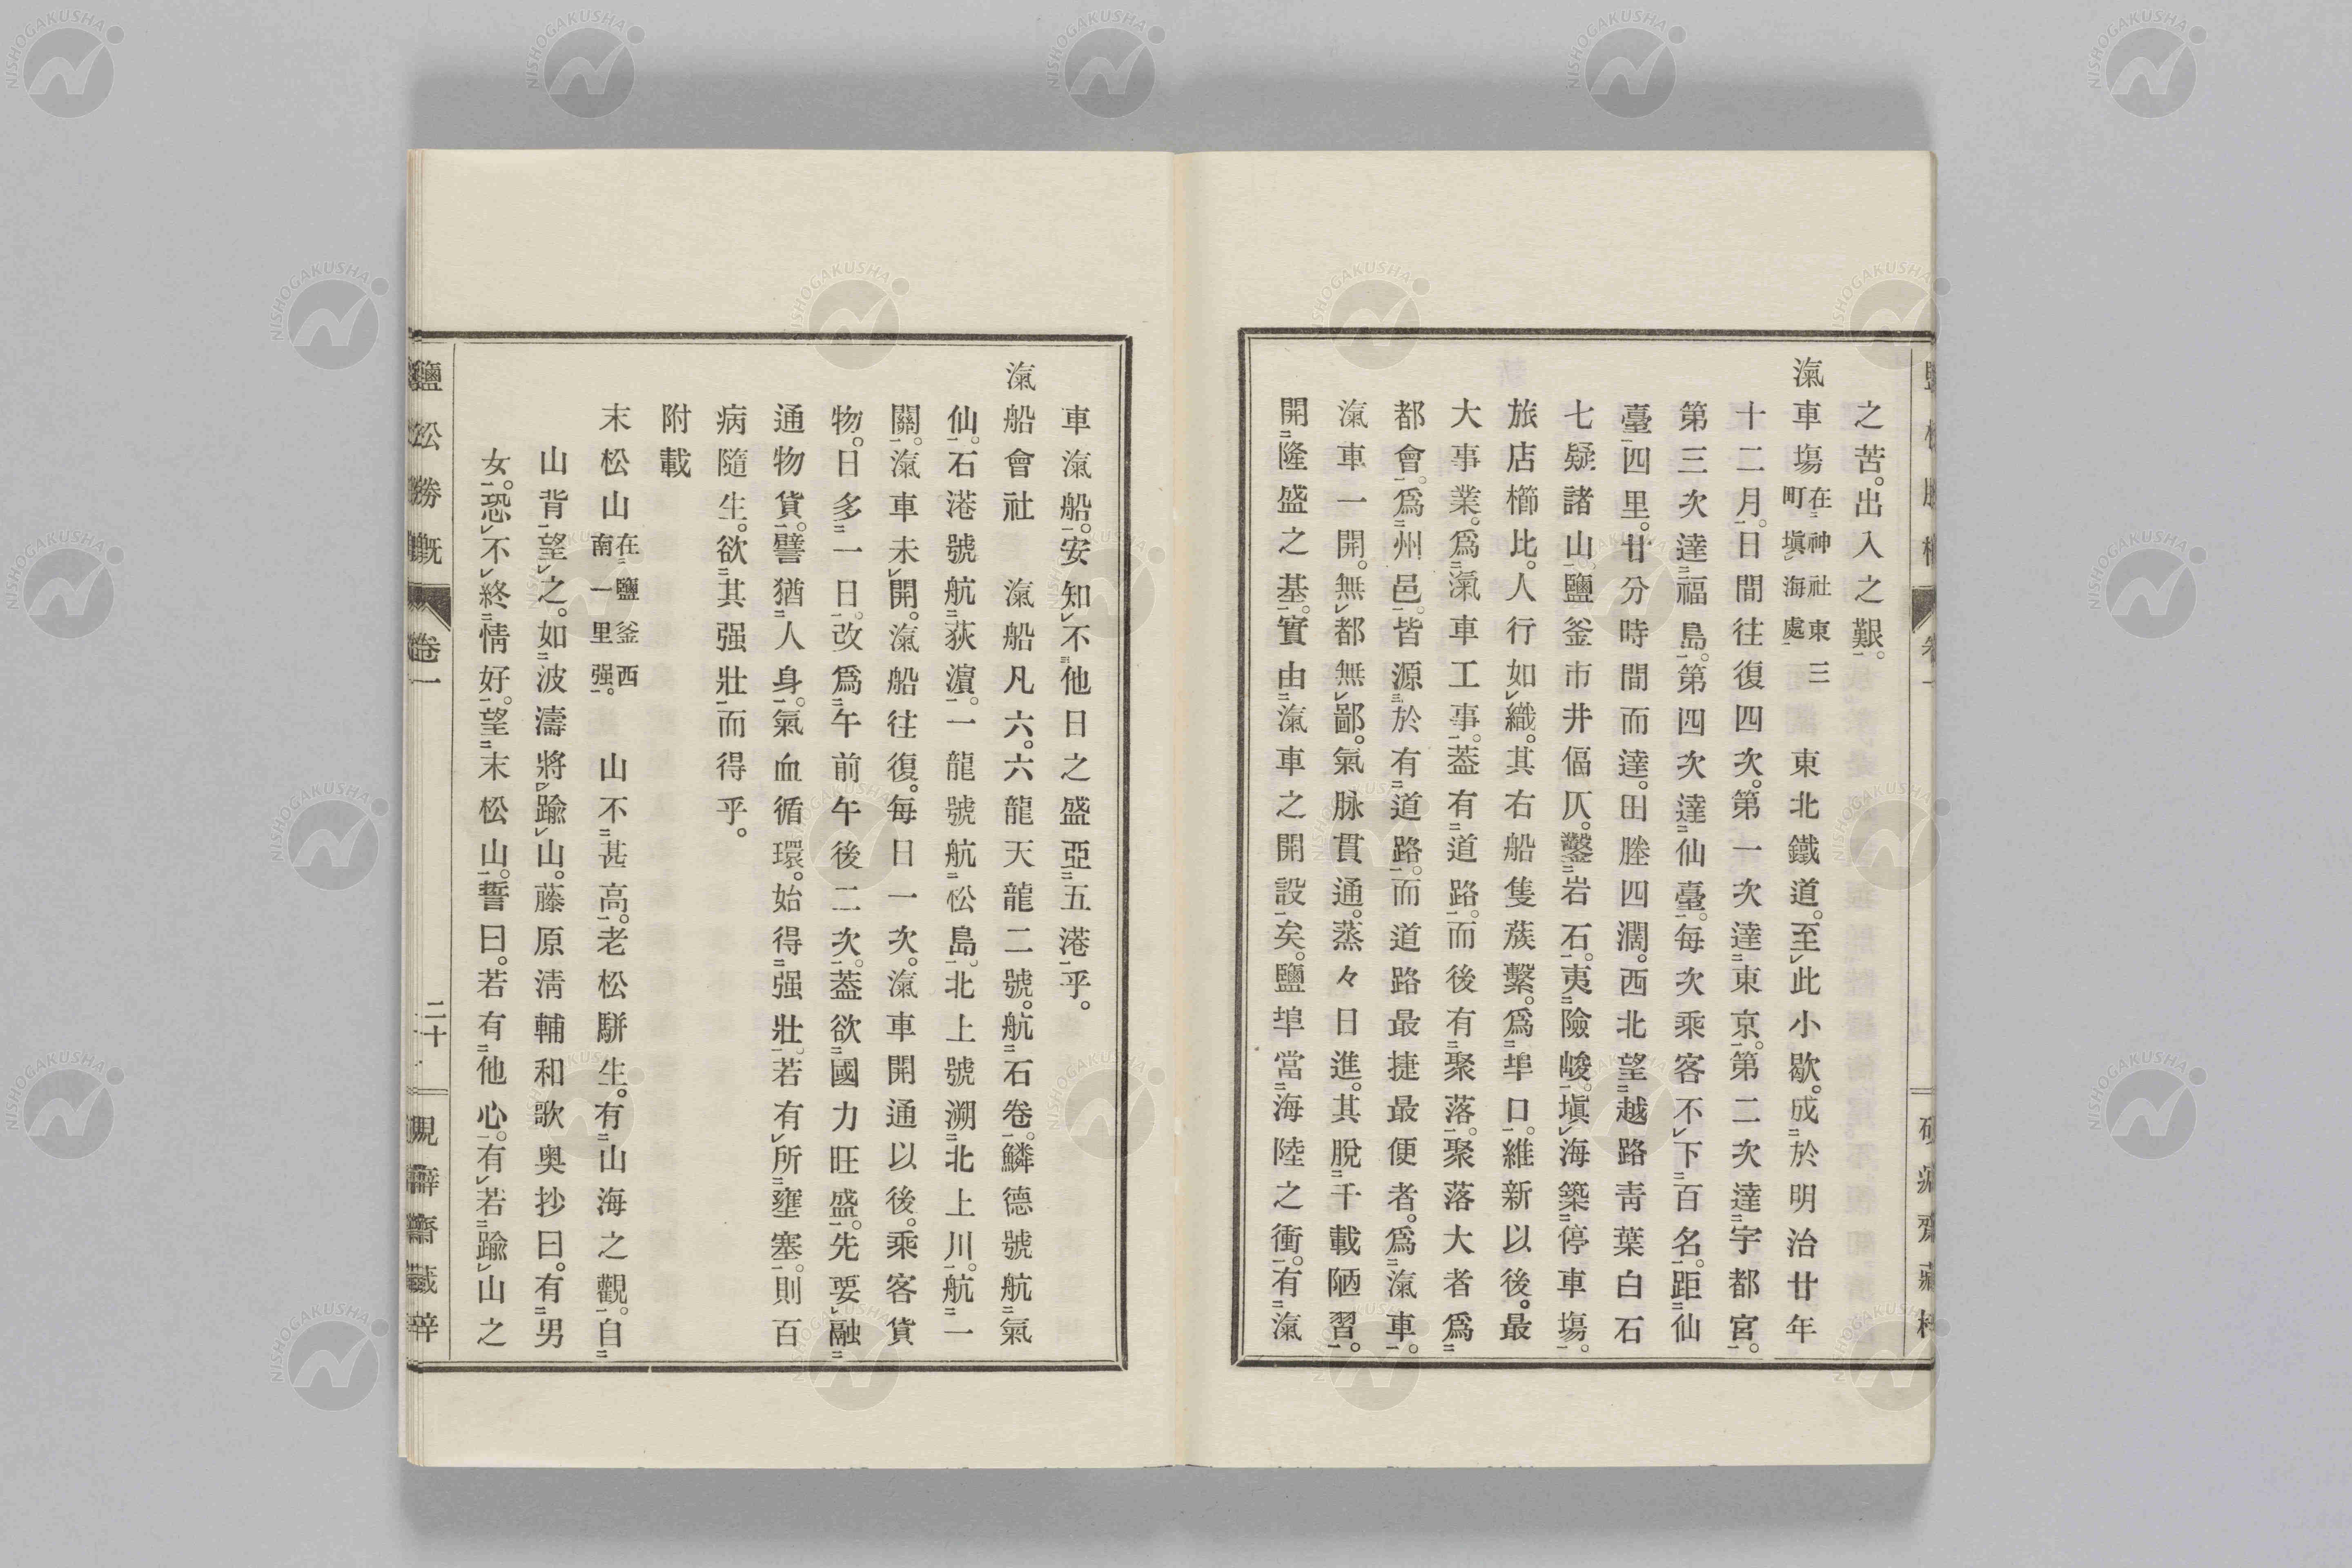 之苦。出入之艱。
滊車場在神社東三町塡海處 東北鐵道。至此小歇。成於明治廿年
十二月。日間往復四次。第一次達東京。第二次達宇都宮。
第三次達福島。第四次達仙臺。每次乘客不下百名。距仙
臺四里。廿分時間而達。田塍四濶。西北望越路靑葉白石
七疑諸山。鹽釜市井偪仄。鑿岩石。夷險峻。塡海築停車場。
旅店櫛比。人行如織。其右船隻蔟繫。爲埠口。維新以後。最
大事業。爲滊車工事。葢有道路。而後有聚落。聚落大者爲
都會。爲州邑。皆源於有道路。而道路最捷最便者。爲滊車。
滊車一開。無都無鄙。氣脉貫通。蒸々日進。其脫千載陋習。
開隆盛之基。實由滊車之開設矣。鹽埠當海陸之衝。有滊
車滊船。安知不他日之盛亞五港乎。
滊船會社 滊船凡六。六龍天龍二號。航石卷。鱗德號航氣
仙。石港號航荻濵。一龍號航松島。北上號溯北上川。航一
關。滊車未開。滊船往復。每日一次。滊車開通以後。乘客貨
物。日多一日。改爲午前午後二次。葢欲國力旺盛。先要融
通物貨。譬猶人身。氣血循環。始得强壯。若有所壅塞。則百
病隨生。欲其强壯而得乎。
附載
末松山在鹽釜西南一里强。 山不甚高。老松駢生。有山海之觀。自
山背望之。如波濤將踰山。藤原淸輔和歌奥抄曰。有男
女。恐不終情好。望末松山。誓曰。若有他心。有若踰山之
鹽松勝概 卷一 二十